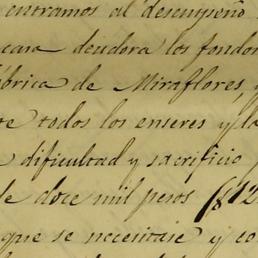 entramos al desempeño
cara deudora los fondo
brica de Miraflores, y
te todos los enseres y la
dificultad y sacrificio
de doce mil pesos
que se necesitase y co